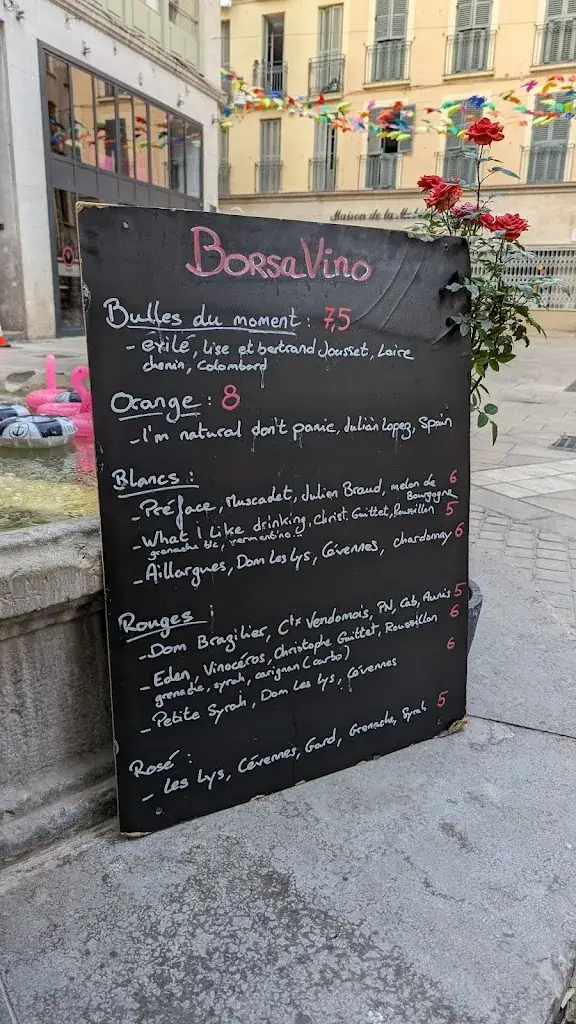 BorsaVino
Bulles du moment : 7,5
- éxilé, Lise et bertrand Jousset, Loire
chenin, Colombard
Orange : 8
- I'm natural don't panic, Julian Lopez, Spain
Blancs :
- Préface, Muscadet, Julien Braud, melon de 6
Bourgogne
- What I Like drinking, Christ. Guittet, Roussillon 5
grenache blc, vermentino...
- Aillargues, Dom Les Lys, Cévennes, chardonnay 6
Rouges :
- Dom Brazilier, Ctx Vendomois, PN, Cab, Aunis 5
- Eden, Vinocéros, Christophe Guittet, Roussillon 6
grenache, syrah, carignan (carbo)
- Petite Syrah, Dom Les Lys, Cévennes 6
Rosé :
- Les Lys, Cévennes, Gard, Grenache, Syrah 5
Maison de la